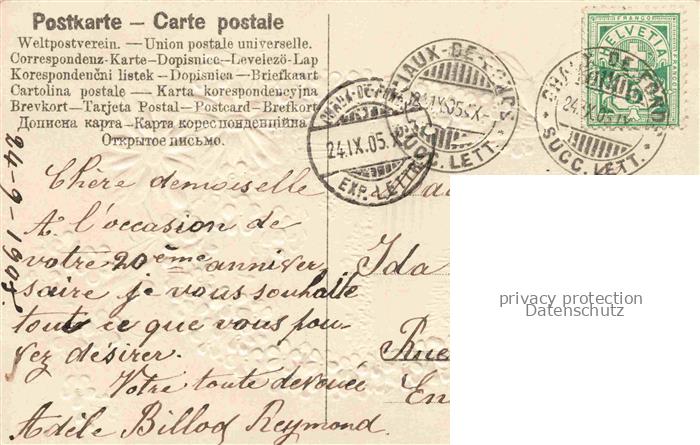 Postkarte – Carte postale
Weltpostverein. – Union postale universelle.
Correspondenz-Karte – Dopisnice – Levelező-Lap
Korespondenční listek – Dopisnica – Briefkaart
Cartolina postale – Karta korespondencyjna
Brevkort – Tarjeta Postal – Postcard – Brefkort
Дописна карта – Карта кореспонденційна
Открытое письмо.
24-9-1905
Chère demoiselle
A l'occasion de
votre 20ème anniver
saire je vous souhaite
tout ce que vous pou-
vez désirer.
Votre toute dévouée
Adèle Billod Reymond.
24.IX.05.X
EXP. LETTR.
24.IX.05.IX-
SUCC. LETT.
FRANCO
HELVETIA
CHAUX-DE-FONDS
24.IX.05.IX
SUCC. LETT.
Ida
Rue
En
privacy protection
Datenschutz